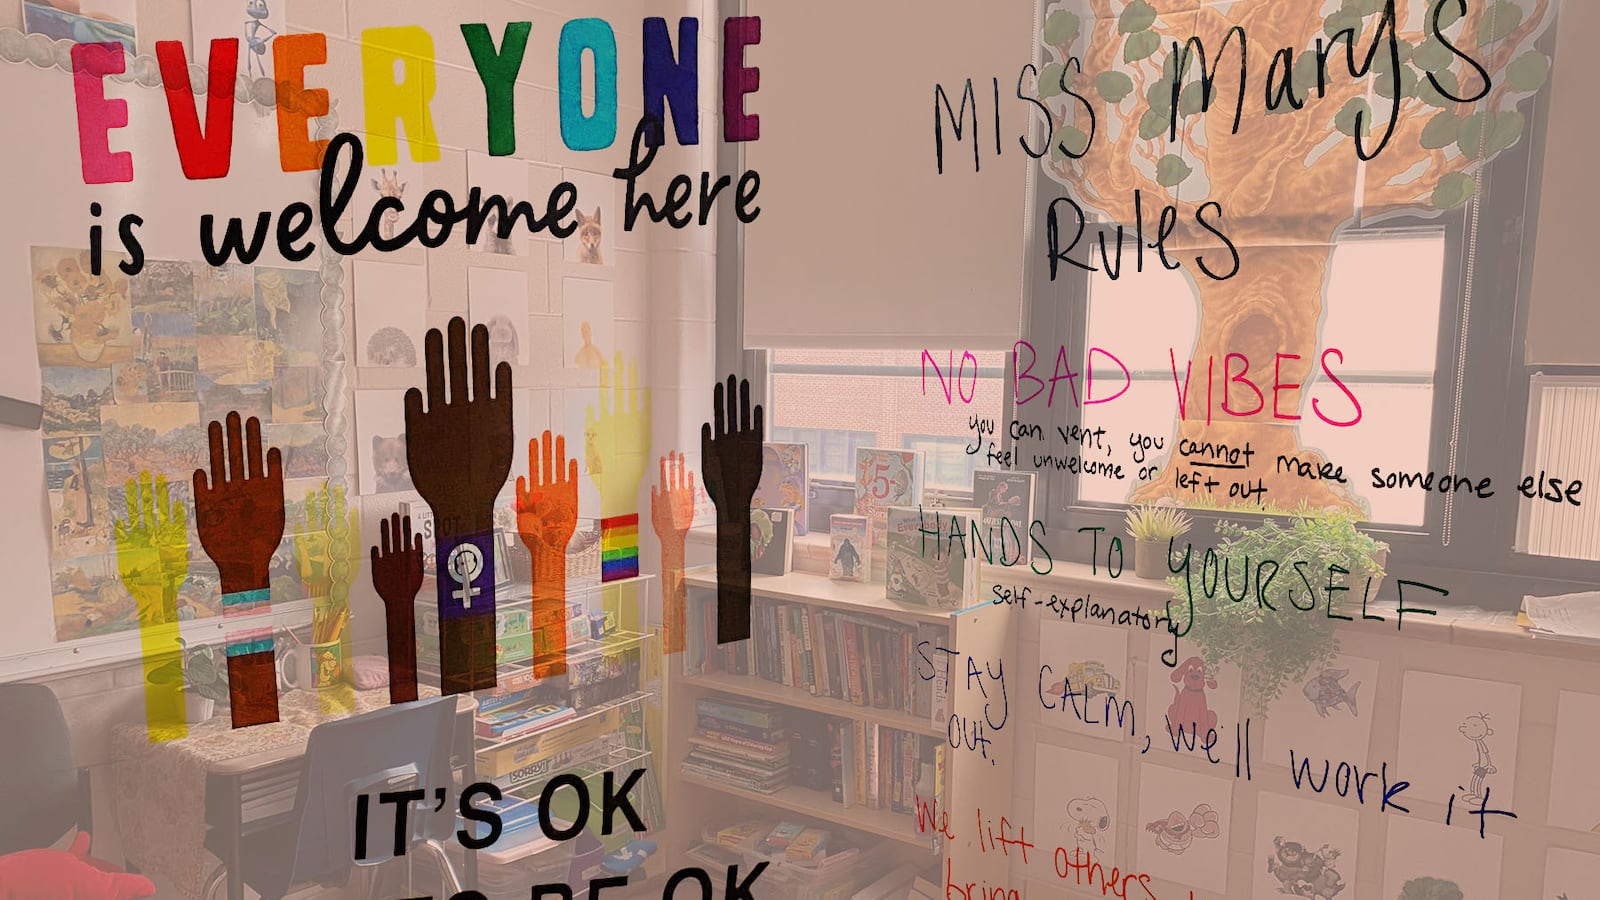 EVERYONE
is welcome here
IT'S OK
TO BE OK
MISS Mary's
Rules
NO BAD VIBES
you can vent, you cannot make someone else
feel unwelcome or left out.
HANDS TO YOURSELF
self-explanatory
STAY CALM, we'll work it
OUT.
We lift others
bring
SPOT
SORRY!
5
Everybody